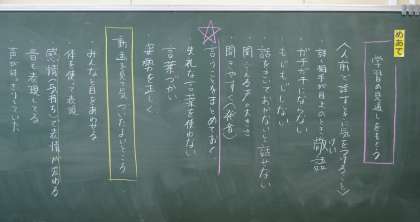 めあて
学習の見通しをもとう
〈人前で話すときに気をつけること〉
話す相手が目上のとき 敬語
けい
ガチガチにならない
もじもじしない
話をきいておかないと話せない
聞こえる
聞きやすく(発音)
言うことをまとめておく
失礼な言葉を使わない
言葉づかい
姿勢を正しく
動画を見て気づいたよいところ
・みんなと目をあわせる
体を使って表現
感情(気持ち)が伝わる
音を表現してる
声がはっきりしていた